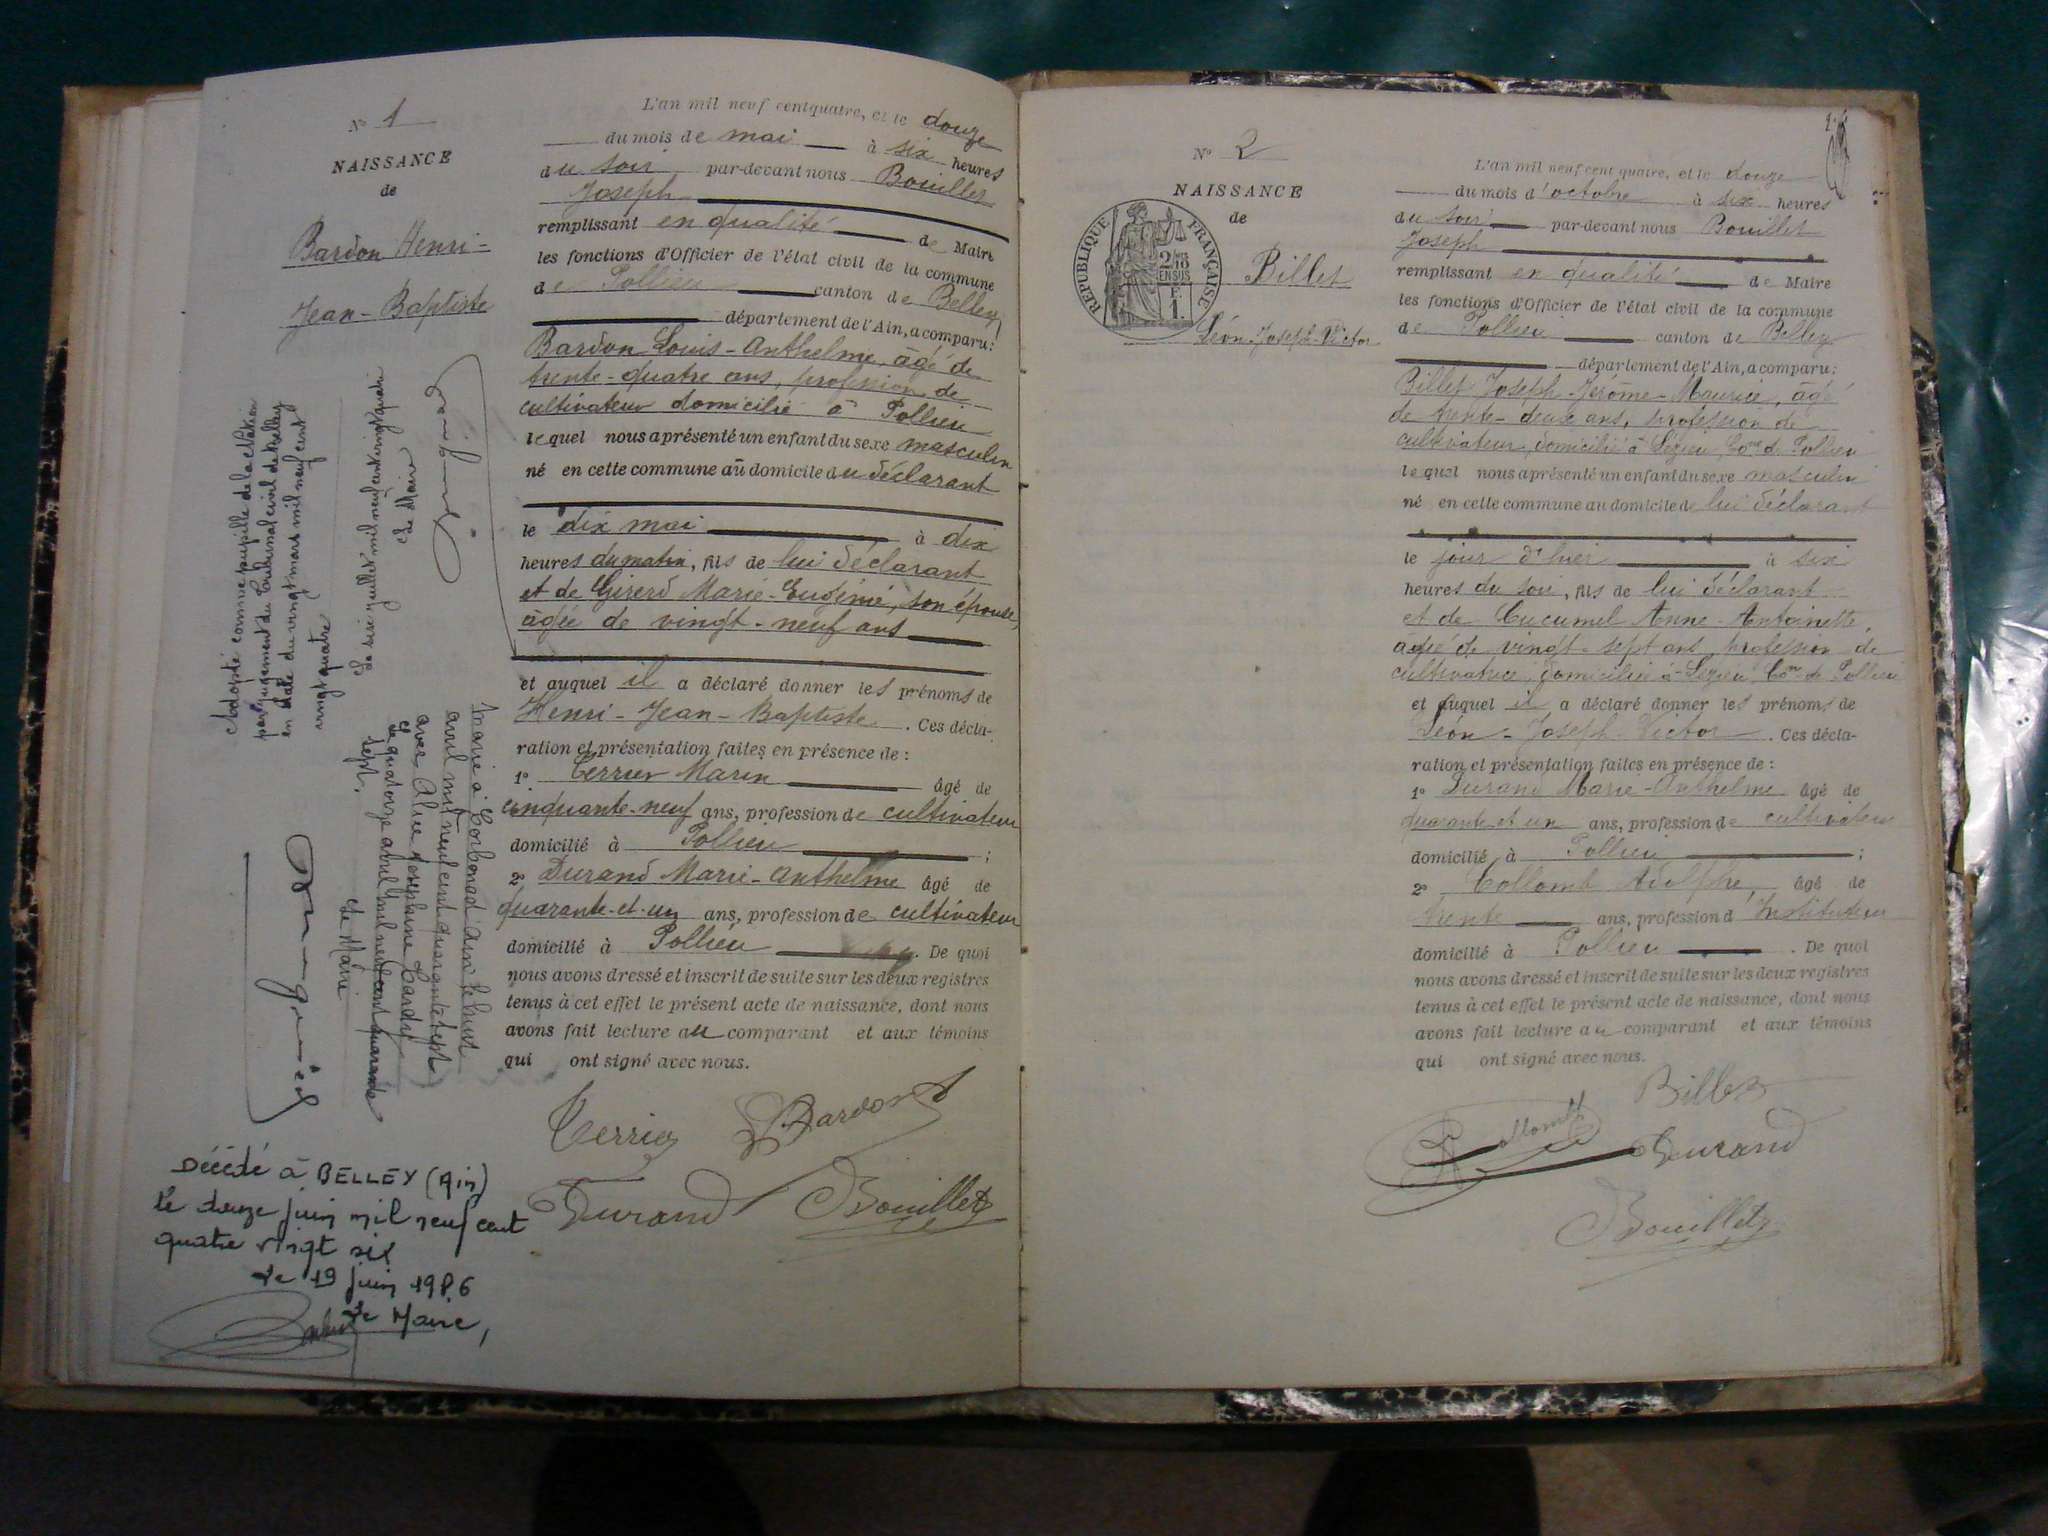 N° 1
NAISSANCE
de
Bardon Henri-
Jean-Baptiste
Adopté comme pupille de la Nation
par jugement du Tribunal civil de Belley
en date du vingt mars mil neuf cent
vingt quatre
Le seize juillet mil neuf cent vingt quatre
Le Maire
Marié à Corbonod Ain le huit
avril mil neuf cent quarante sept
avec Alice Joséphine Cardy
Le quatorze avril mil neuf cent quarante
sept.
Le Maire
Décédé à BELLEY (Ain)
le douze juin mil neuf cent
quatre vingt six
Le 19 juin 1986
Le Maire,
L'an mil neuf cent quatre, et le douze
du mois de mai à six heures
du soir par-devant nous Bouillet
Joseph
remplissant en qualité de Maire
les fonctions d'Officier de l'état civil de la commune
de Pollieu canton de Belley
département de l'Ain, a comparu:
Bardon Louis-Anthelme, âgé de
trente-quatre ans, profession de
cultivateur domicilié à Pollieu
lequel nous a présenté un enfant du sexe masculin
né en cette commune au domicile du déclarant
le dix mai à dix
heures du matin, fils de lui déclarant
et de Girerd Marie-Eugénie, son épouse,
âgée de vingt-neuf ans
et auquel il a déclaré donner les prénoms de
Henri-Jean-Baptiste. Ces décla-
ration et présentation faites en présence de :
1° Terrier Marin âgé de
cinquante-neuf ans, profession de cultivateur
domicilié à Pollieu ;
2° Durand Marie-Anthelme âgé de
quarante-et-un ans, profession de cultivateur
domicilié à Pollieu. De quoi
nous avons dressé et inscrit de suite sur les deux registres
tenus à cet effet le présent acte de naissance, dont nous
avons fait lecture au comparant et aux témoins
qui ont signé avec nous.
Terrier Bardon
Durand Bouillet
N° 2
NAISSANCE
de
Billet
Léon-Joseph-Victor
RÉPUBLIQUE FRANÇAISE
2/10
EN SUS
1.
L'an mil neuf cent quatre, et le douze
du mois d'octobre à six heures
du soir par-devant nous Bouillet
Joseph
remplissant en qualité de Maire
les fonctions d'Officier de l'état civil de la commune
de Pollieu canton de Belley
département de l'Ain, a comparu:
Billet Joseph-Jérôme-Maurice, âgé
de trente-deux ans, profession de
cultivateur, domicilié à Sézieu, Cne de Pollieu
lequel nous a présenté un enfant du sexe masculin
né en cette commune au domicile d lui déclarant
le jour d'hier à six
heures du soir, fils de lui déclarant
et de Cucumel Anne-Antoinette,
âgée de vingt-sept ans, profession de
cultivatrice, domiciliée à Sézieu Cne de Pollieu
et auquel il a déclaré donner les prénoms de
Léon-Joseph-Victor. Ces décla-
ration et présentation faites en présence de :
1° Durand Marie-Anthelme âgé de
quarante et un ans, profession de cultivateur
domicilié à Pollieu ;
2° Collomb Adolphe, âgé de
trente ans, profession d'Instituteur
domicilié à Pollieu. De quoi
nous avons dressé et inscrit de suite sur les deux registres
tenus à cet effet le présent acte de naissance, dont nous
avons fait lecture au comparant et aux témoins
qui ont signé avec nous.
Billet
Collomb Durand
Bouillet